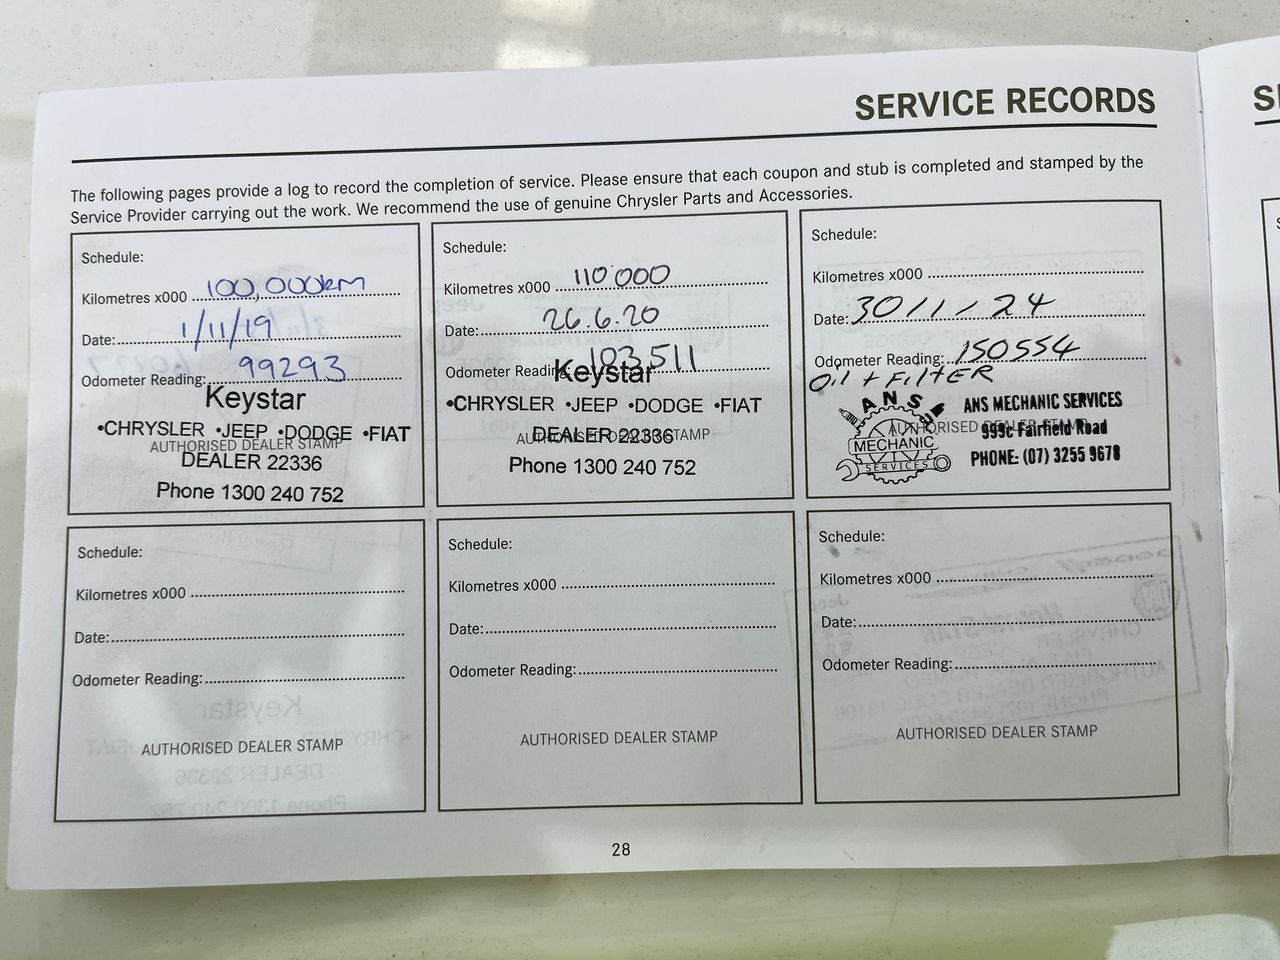 SERVICE RECORDS
The following pages provide a log to record the completion of service. Please ensure that each coupon and stub is completed and stamped by the
Service Provider carrying out the work. We recommend the use of genuine Chrysler Parts and Accessories.
Schedule:
Kilometres x000 100,000km
Date: 1/11/19
Odometer Reading: 99293
Keystar
•CHRYSLER •JEEP •DODGE •FIAT
AUTHORISED DEALER STAMP
DEALER 22336
Phone 1300 240 752
Schedule:
Kilometres x000 110 000
Date: 26.6.20
Odometer Reading: 103511
Keystar
•CHRYSLER •JEEP •DODGE •FIAT
AUTHORISED DEALER STAMP
DEALER 22336
Phone 1300 240 752
Schedule:
Kilometres x000
Date: 30/1/-24
Odometer Reading: 150554
Oil + FilTER
ANS
MECHANIC
SERVICES
ANS MECHANIC SERVICES
AUTHORISED DEALER STAMP
999c Fairfield Road
PHONE: (07) 3255 9678
Schedule:
Kilometres x000
Date:
Odometer Reading:
AUTHORISED DEALER STAMP
Schedule:
Kilometres x000
Date:
Odometer Reading:
AUTHORISED DEALER STAMP
Schedule:
Kilometres x000
Date:
Odometer Reading:
AUTHORISED DEALER STAMP
28